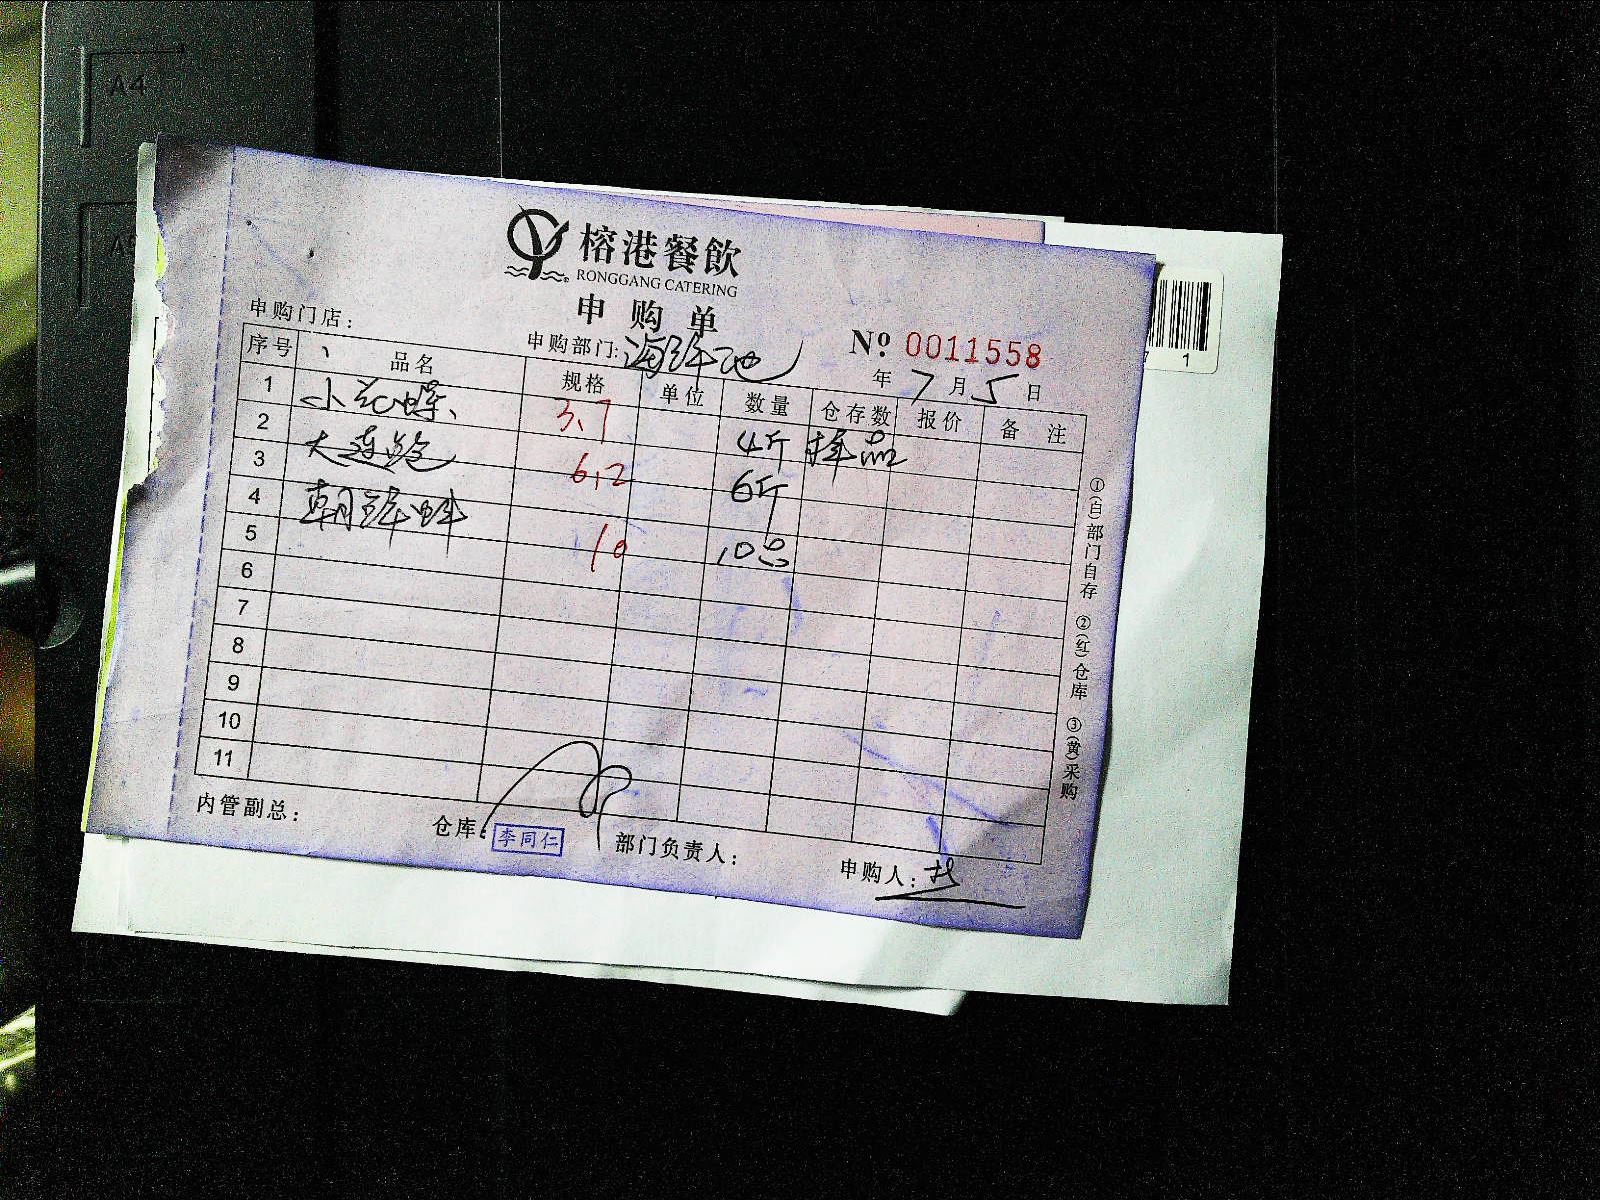 A4
A5
榕港餐飲
RONGGANG CATERING
申购单
申购门店：
申购部门: 海鲜池
№ 0011558
年 7 月 5 日
序号 品名 规格 单位 数量 仓存数 报价 备注
1 小花螺 3.7 4斤 样品
2 大连鲍 6.2 6斤
3
4 朝鲜蚌 10 10只
5
6
7
8
9
10
11
内管副总： 仓库： 李同仁 部门负责人： 申购人：
①(白)部门自存 ②(红)仓库 ③(黄)采购
1